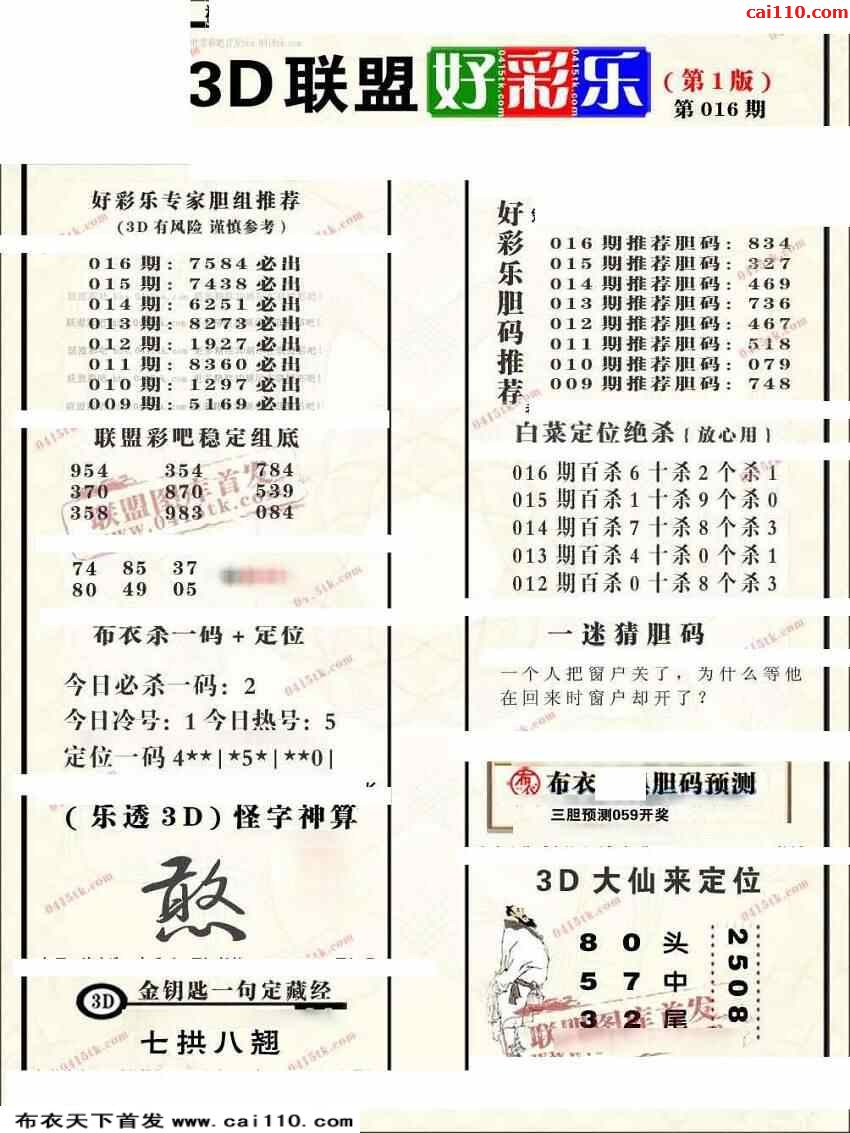 cai110.com
3D联盟好彩乐
(第1版)
第016期
好彩乐专家胆组推荐
(3D有风险 谨慎参考)
016期: 7584必出
015期: 7438必出
014期: 6251必出
013期: 8273必出
012期: 1927必出
011期: 8360必出
010期: 1297必出
009期: 5169必出
联盟彩吧稳定组底
954 354 784
370 870 539
358 983 084
联盟图库首发
www.0415tk.com
74 85 37
80 49 05
布衣杀一码+定位
今日必杀一码: 2
今日冷号: 1 今日热号: 5
定位一码 4**|*5*|**0|
(乐透3D)怪字神算
憨
3D 金钥匙一句定藏经
七拱八翘
好彩乐胆码推荐
016期推荐胆码: 834
015期推荐胆码: 327
014期推荐胆码: 469
013期推荐胆码: 736
012期推荐胆码: 467
011期推荐胆码: 518
010期推荐胆码: 079
009期推荐胆码: 748
白菜定位绝杀{放心用}
016期百杀6十杀2个杀1
015期百杀1十杀9个杀0
014期百杀7十杀8个杀3
013期百杀4十杀0个杀1
012期百杀0十杀8个杀3
一迷猜胆码
一个人把窗户关了，为什么等他
在回来时窗户却开了？
布衣 胆码预测
三胆预测059开奖
3D大仙来定位
8 0 头
5 7 中
3 2 尾
2508
联盟图库首发
布衣天下首发 www.cai110.com